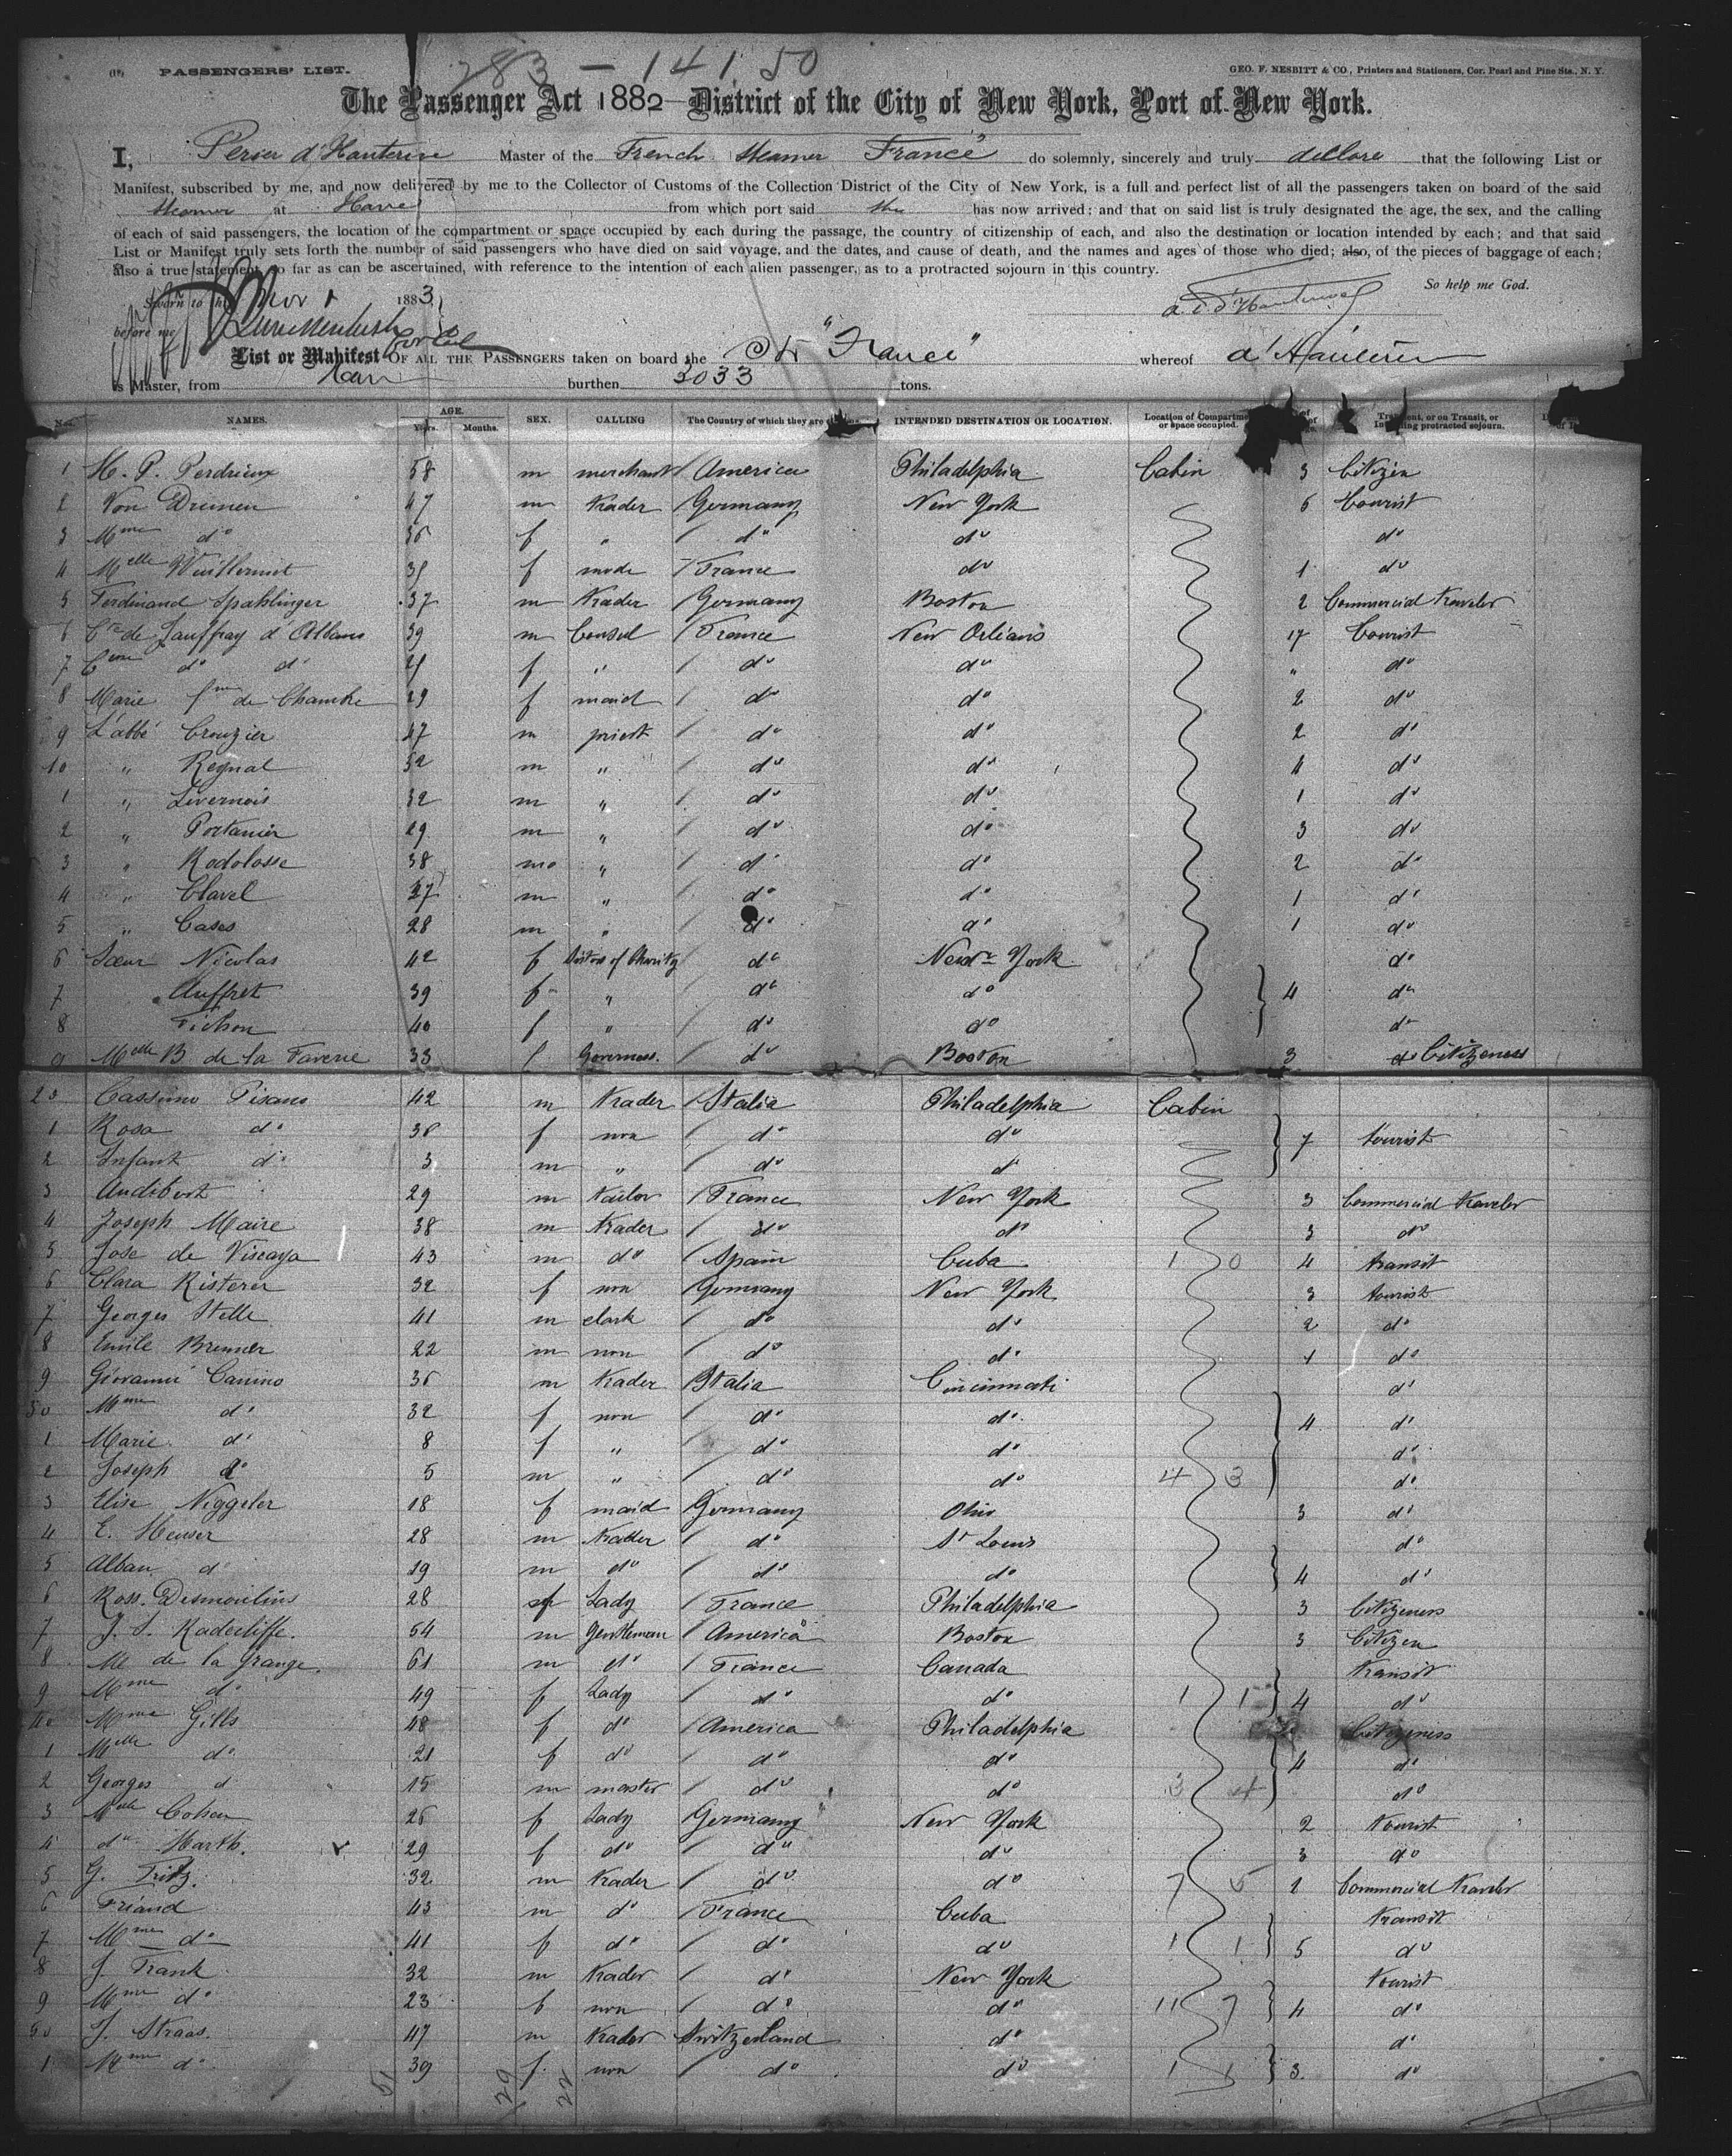 283 — 141.50
(17) PASSENGERS' LIST. GEO. F. NESBITT & CO., Printers and Stationers, Cor. Pearl and Pine Sts., N. Y.
The Passenger Act 1882 District of the City of New York, Port of New York.
I, Perier d'Hauterive Master of the French Steamer France do solemnly, sincerely and truly declare that the following List or
Manifest, subscribed by me, and now delivered by me to the Collector of Customs of the Collection District of the City of New York, is a full and perfect list of all the passengers taken on board of the said
Steamer at Havre from which port said has now arrived; and that on said list is truly designated the age, the sex, and the calling
of each of said passengers, the location of the compartment or space occupied by each during the passage, the country of citizenship of each, and also the destination or location intended by each; and that said
List or Manifest truly sets forth the number of said passengers who have died on said voyage, and the dates, and cause of death, and the names and ages of those who died; also, of the pieces of baggage of each;
also a true statement, so far as can be ascertained, with reference to the intention of each alien passenger, as to a protracted sojourn in this country.
So help me God.
Sworn to this Nov 1 1883
before me
List or Manifest OF ALL THE PASSENGERS taken on board the Str "France" whereof d'Hauterive
is Master, from Havre burthen 3033 tons.
No. NAMES. AGE. Years. Months. SEX. CALLING The Country of which they are INTENDED DESTINATION OR LOCATION. Location of Compartment or space occupied. Transient, or on Transit, or Intending protracted sojourn.
1 H. P. Perdrieux 58 m merchant America Philadelphia Cabin 3 Citizen
2 Von Drunen 47 m trader Germany New York 6 tourist
3 Mme do 36 f " do do do
4 Melle Wuillermot 35 f mode France do 1 do
5 Ferdinand Spahlinger 37 m trader Germany Boston 2 Commercial traveler
6 Cte de Jauffray d'Albans 39 m Consul France New Orleans 17 tourist
7 Ctesse do do 25 f " do do " do
8 Marie fme de Chambre 29 f maid do do 2 do
9 L'abbé Crouzier 47 m priest do do 2 do
10 " Regnal 52 m " do do 4 do
1 " Livernois 32 m " do do 1 do
2 " Portanier 29 m " do do 3 do
3 " Rodolosse 38 m " do do 2 do
4 " Clavel 27 m " do do 1 do
5 " Cases 28 m " do do 1 do
6 Sœur Nicolas 42 f Sisters of Charity do New York do
7 Auffret 39 f " do do 4 do
8 Fichon 40 f " do do do
9 Melle B de la Faverie 33 f Governess. do Boston 3 do Citizeness
20 Cassimo Pisano 42 m trader Italia Philadelphia Cabin
1 Rosa do 36 f non do do 7 tourist
2 Infant do 3 m " do do
3 Audibert 29 m tailor France New York 3 Commercial traveler
4 Joseph Maire 38 m trader do do 3 do
5 Jose de Viscaya 43 m do Spain Cuba 1 0 4 transit
6 Clara Risterer 32 f non Germany New York 3 tourist
7 Georges Stelle 41 m clark do do 2 do
8 Emile Brenner 22 m non do do 1 do
9 Giovanni Canino 36 m trader Italia Cincinnati do
30 Mme do 32 f non do do 4 do
1 Marie do 8 f " do do do
2 Joseph do 5 m " do do 4 3 do
3 Elise Niggeler 18 f maid Germany Ohio 3 do
4 E. Heuser 28 m trader do St Louis do
5 Alban do 19 m do do do 4 do
6 Ross. Desmoulins 28 f Lady France Philadelphia 3 Citizeness
7 J. S. Radecliffe. 54 m gentleman America Boston 3 Citizen
8 Mr de la Grange. 61 m do France Canada transit
9 Mme do 49 f Lady do do 1 1 4 do
40 Mme Gills 48 f do America Philadelphia Citizeness
1 Melle do 21 f do do do 4 do
2 Georges do 15 m master do do 3 4 do
3 Melle Cohen 26 f Lady Germany New York 2 tourist
4 do Harth. 29 f do do do 3 do
5 G. Fritz. 32 m trader do do 7 5 1 Commercial traveler
6 Friand 43 m do France Cuba transit
7 Mme do 41 f do do do 1 1 5 do
8 J. Frank 32 m trader do New York tourist
9 Mme do 23 f non do do 11 7 4 do
50 J. Straas. 47 m trader Switzerland do do
1 Mme do 39 f non do do 1 1 3. do
51 29 22